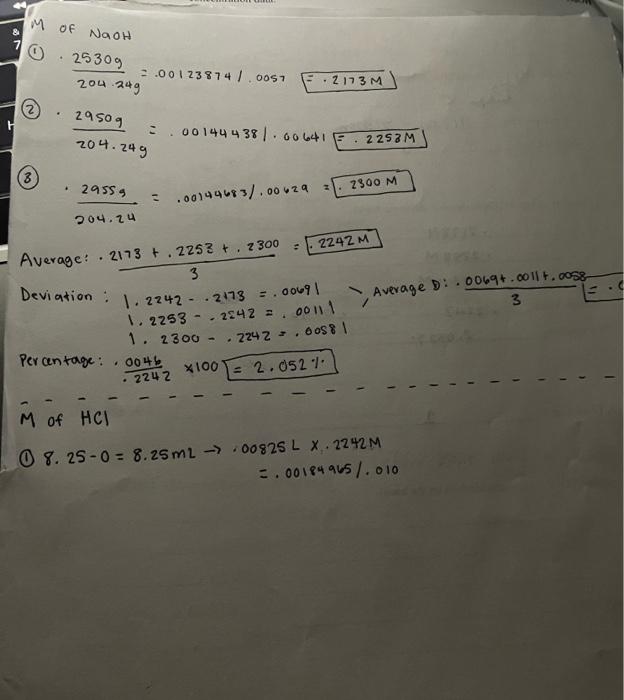 M OF NaOH
① .2530g / 204.24g = .00123874 / .0057 = .2173 M
② .2950g / 204.24g = .00144438 / .00641 = .2253M
③ .2955g / 204.24 = .00144683 / .00629 = .2300 M
Average: .2173 + .2253 + .2300 / 3 = .2242 M
Deviation : |.2242 - .2173 = .0069|
|.2253 - .2242 = .0011|
|. 2300 - .2242 = .0058|
Average D: .0069+.0011+.0058 / 3 = .0
Percentage: .0046 / .2242 x100 = 2.052%
M of HCl
① 8.25-0 = 8.25mL → .00825 L X .2242M
= .00184965 / .010
& 7